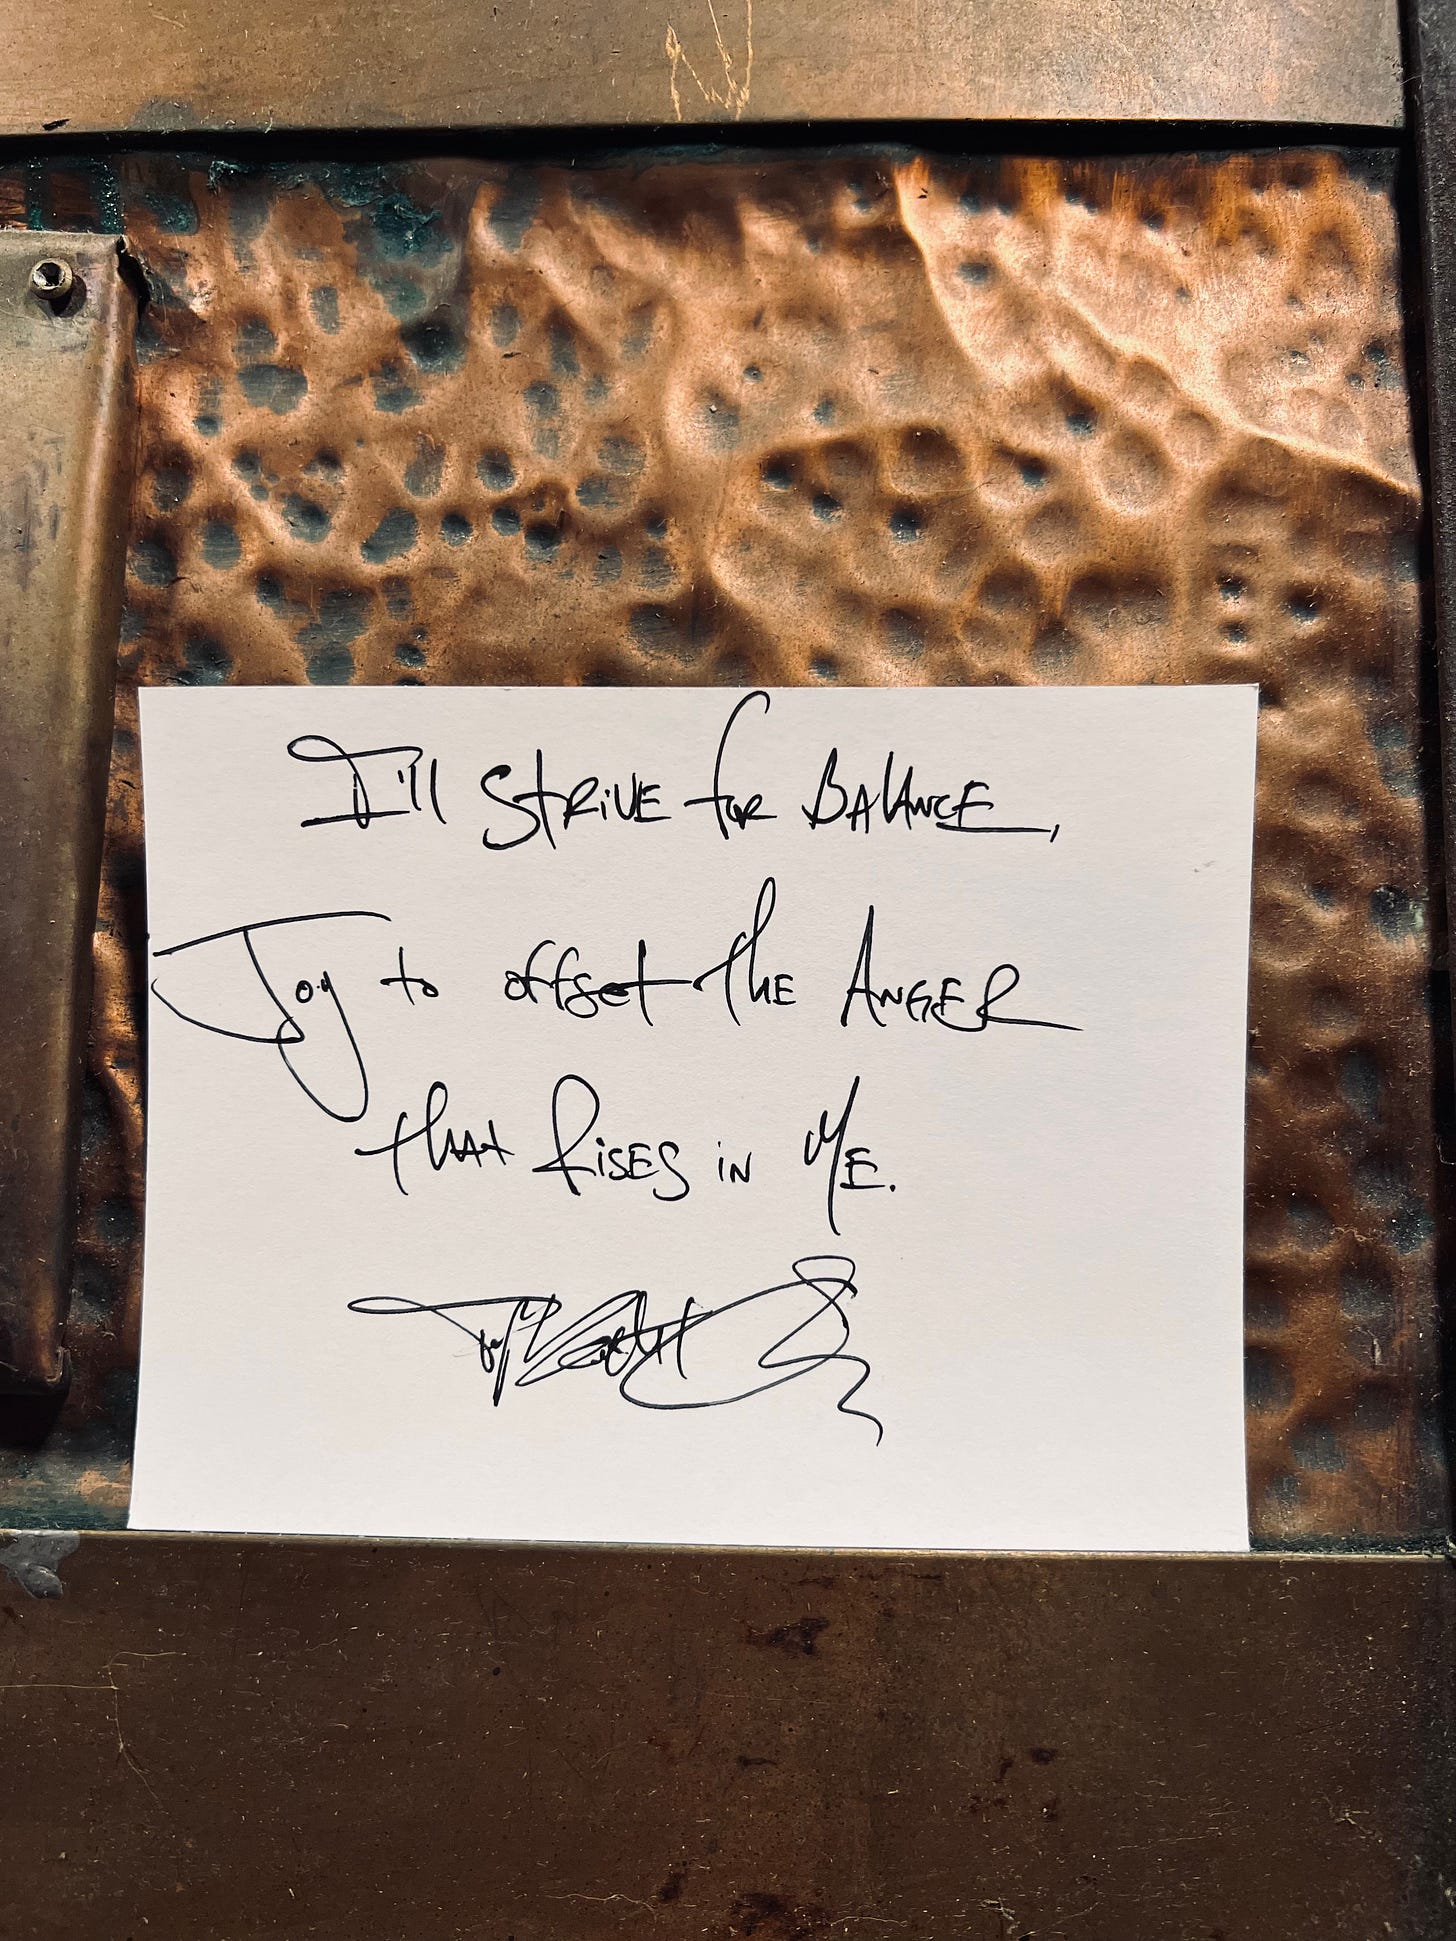 I'll strive for Balance,
Joy to offset the Anger
that Rises in Me.